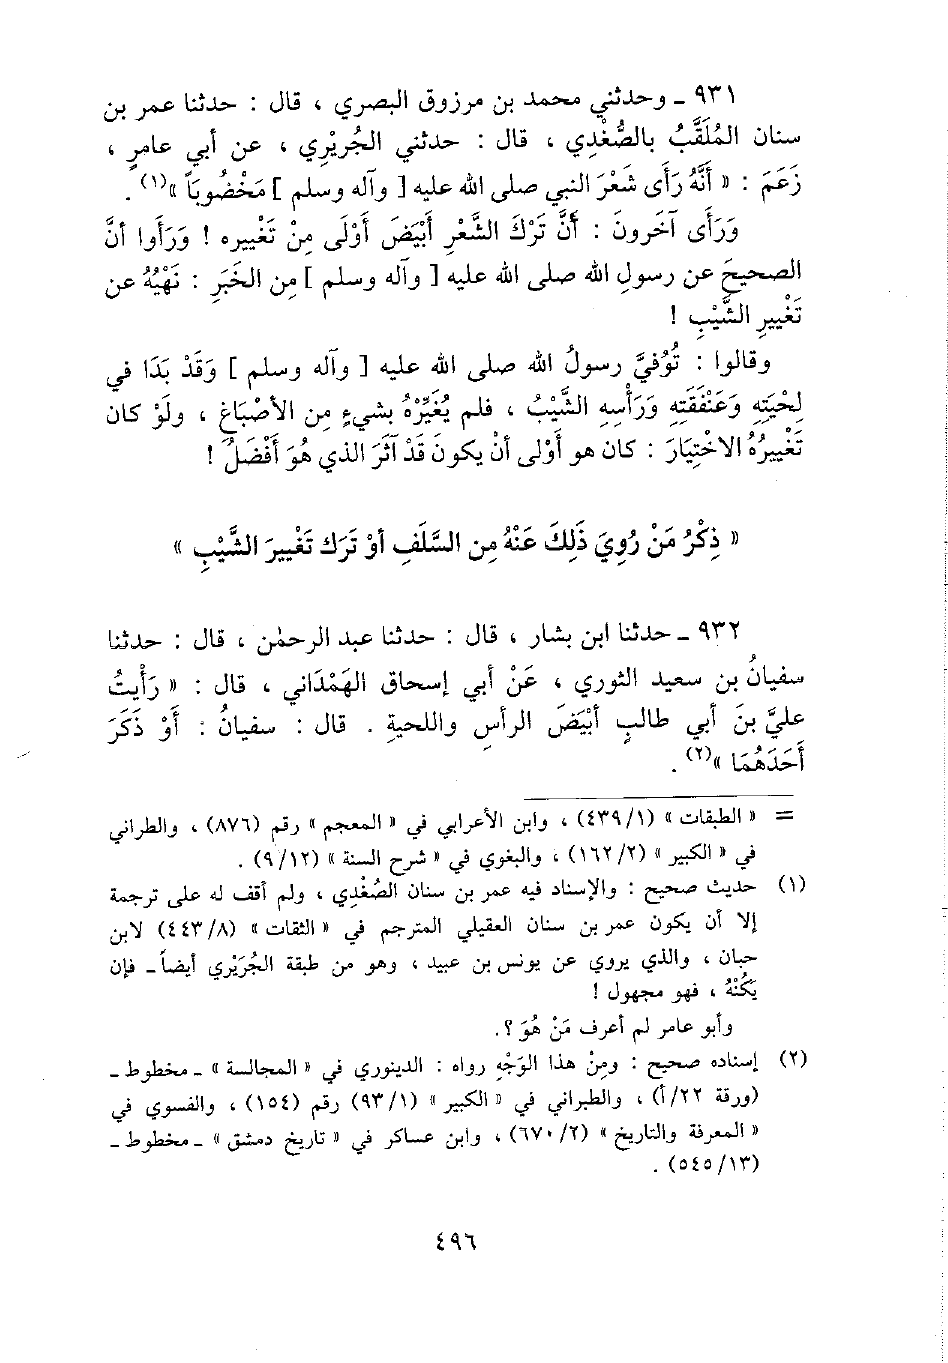 ٩٣١ ـ وحدثني محمد بن مرزوق البصري ، قال : حدثنا عمر بن
سنان المُلَقَّبُ بالصُّغْدِي ، قال : حدثني الجُرَيْرِي ، عن أبي عامرٍ ،
زَعَمَ : « أَنَّهُ رَأى شَعْرَ النبي صلى الله عليه [ وآله وسلم ] مَخْضُوبَاً »(١) .
وَرَأى آخَرونَ : أَنَّ تَرْكَ الشَّعْرِ أَبْيَضَ أَوْلَى مِنْ تَغْييره ! وَرَأوا أنَّ
الصحيحَ عن رسولِ الله صلى الله عليه [ وآله وسلم ] مِن الخَبَرِ : نَهْيُهُ عن
تَغْييرِ الشَّيْبِ !
وقالوا : تُوُفيَّ رسولُ الله صلى الله عليه [ وآله وسلم ] وَقَدْ بَدَا في
لِحْيَتِهِ وَعَنْفَقَتِهِ وَرَأْسِهِ الشَّيْبُ ، فلم يُغَيِّرْهُ بشيءٍ من الأصْبَاغِ ، ولَوْ كان
تَغْييرُهُ الاخْتِيَارَ : كان هو أوْلى أنْ يكونَ قَدْ آثَرَ الذي هُوَ أَفْضَلُ !
« ذِكْرُ مَنْ رُوِيَ ذَلِكَ عَنْهُ مِن السَّلَفِ أوْ تَرَك تَغْييرَ الشَّيْبِ »
٩٣٢ ـ حدثنا ابن بشار ، قال : حدثنا عبد الرحمٰن ، قال : حدثنا
سفيانُ بن سعيد الثوري ، عَنْ أبي إسحاق الهَمْدَاني ، قال : « رَأيتُ
عليَّ بنَ أبي طالبٍ أبْيَضَ الرأسِ واللحيةِ . قال : سفيانُ : أَوْ ذَكَرَ
أَحَدَهُمَا »(٢) .
= « الطبقات » (٤٣٩/١) ، وابن الأعرابي في « المعجم » رقم (٨٧٦) ، والطراني
في « الكبير » (١٦٢/٢) ، والبغوي في « شرح السنة » (٩/١٢) .
(١) حديث صحيح : والإسناد فيه عمر بن سنان الصُغْدِي ، ولم أقف له على ترجمة
إلا أن يكون عمر بن سنان العقيلي المترجم في « الثقات » (٤٤٣/٨) لابن
حبان ، والذي يروي عن يونس بن عبيد ، وهو من طبقة الجُرَيْري أيضاً ـ فإن
يَكُنْهُ ، فهو مجهول !
وأبو عامر لم أعرف مَنْ هُوَ ؟.
(٢) إسناده صحيح : ومِنْ هذا الوَجْهِ رواه : الدينوري في « المجالسة » ـ مخطوط ـ
(ورقة ٢٢/أ) ، والطبراني في « الكبير » (٩٣/١) رقم (١٥٤) ، والفسوي في
« المعرفة والتاريخ » (٦٧٠/٢) ، وابن عساكر في « تاريخ دمشق » ـ مخطوط ـ
(٥٤٥/١٣) .
٤٩٦